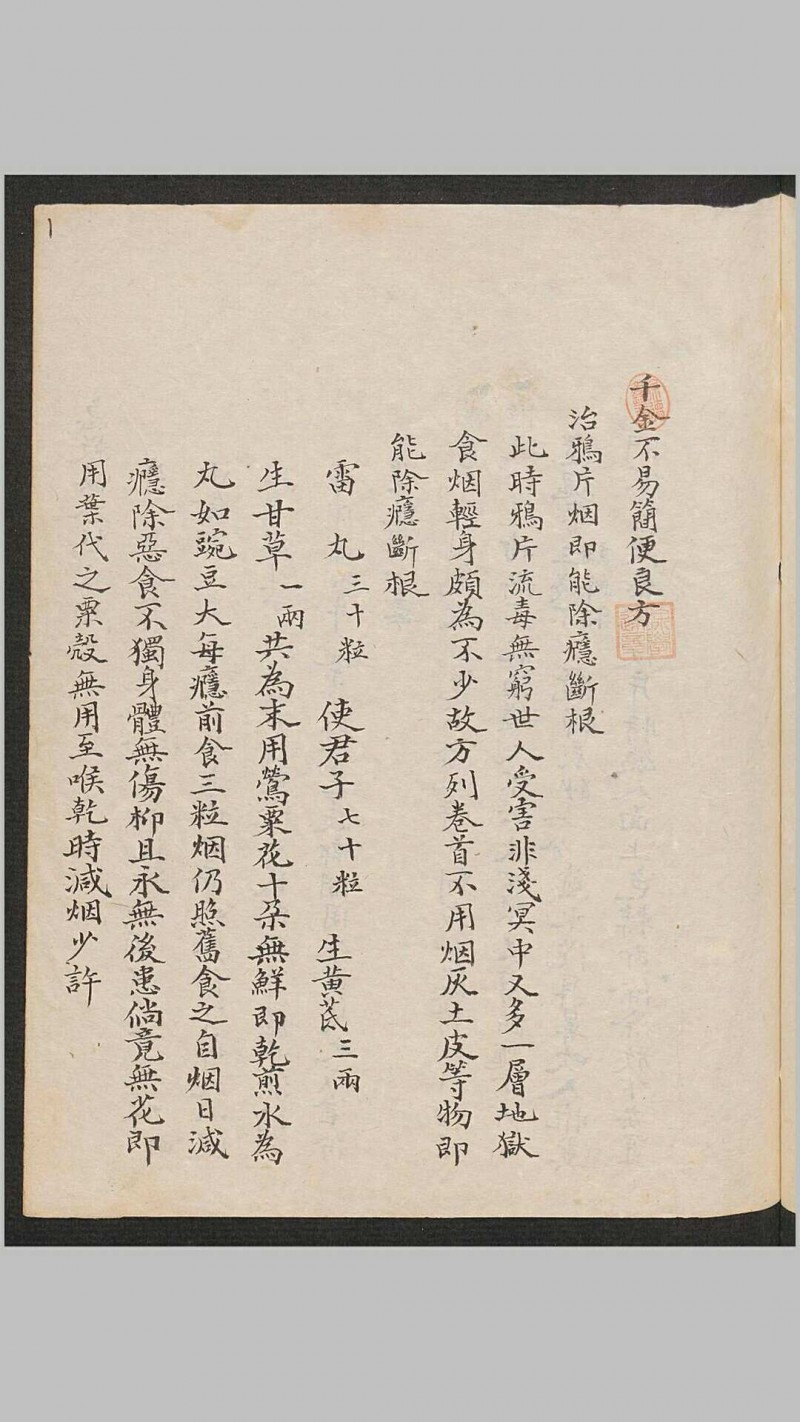 千金不易簡便良方
治鴉片烟即能除癮斷根
此時鴉片流毒無窮世人受害非淺冥中又多一層地獄
食烟輕身頗為不少故方列卷首不用烟灰土皮等物即
能除癮斷根
雷丸三十粒 使君子七十粒 生黄茋三兩
生甘草一兩共為末用鶯粟花十朶無鮮即乾煎水為
丸如豌豆大每癮前食三粒烟仍照舊食之自烟日減
癮除惡食不獨身體無傷柳且永無後患倘竟無花即
用葉代之粟殼無用至喉乾時減烟少許